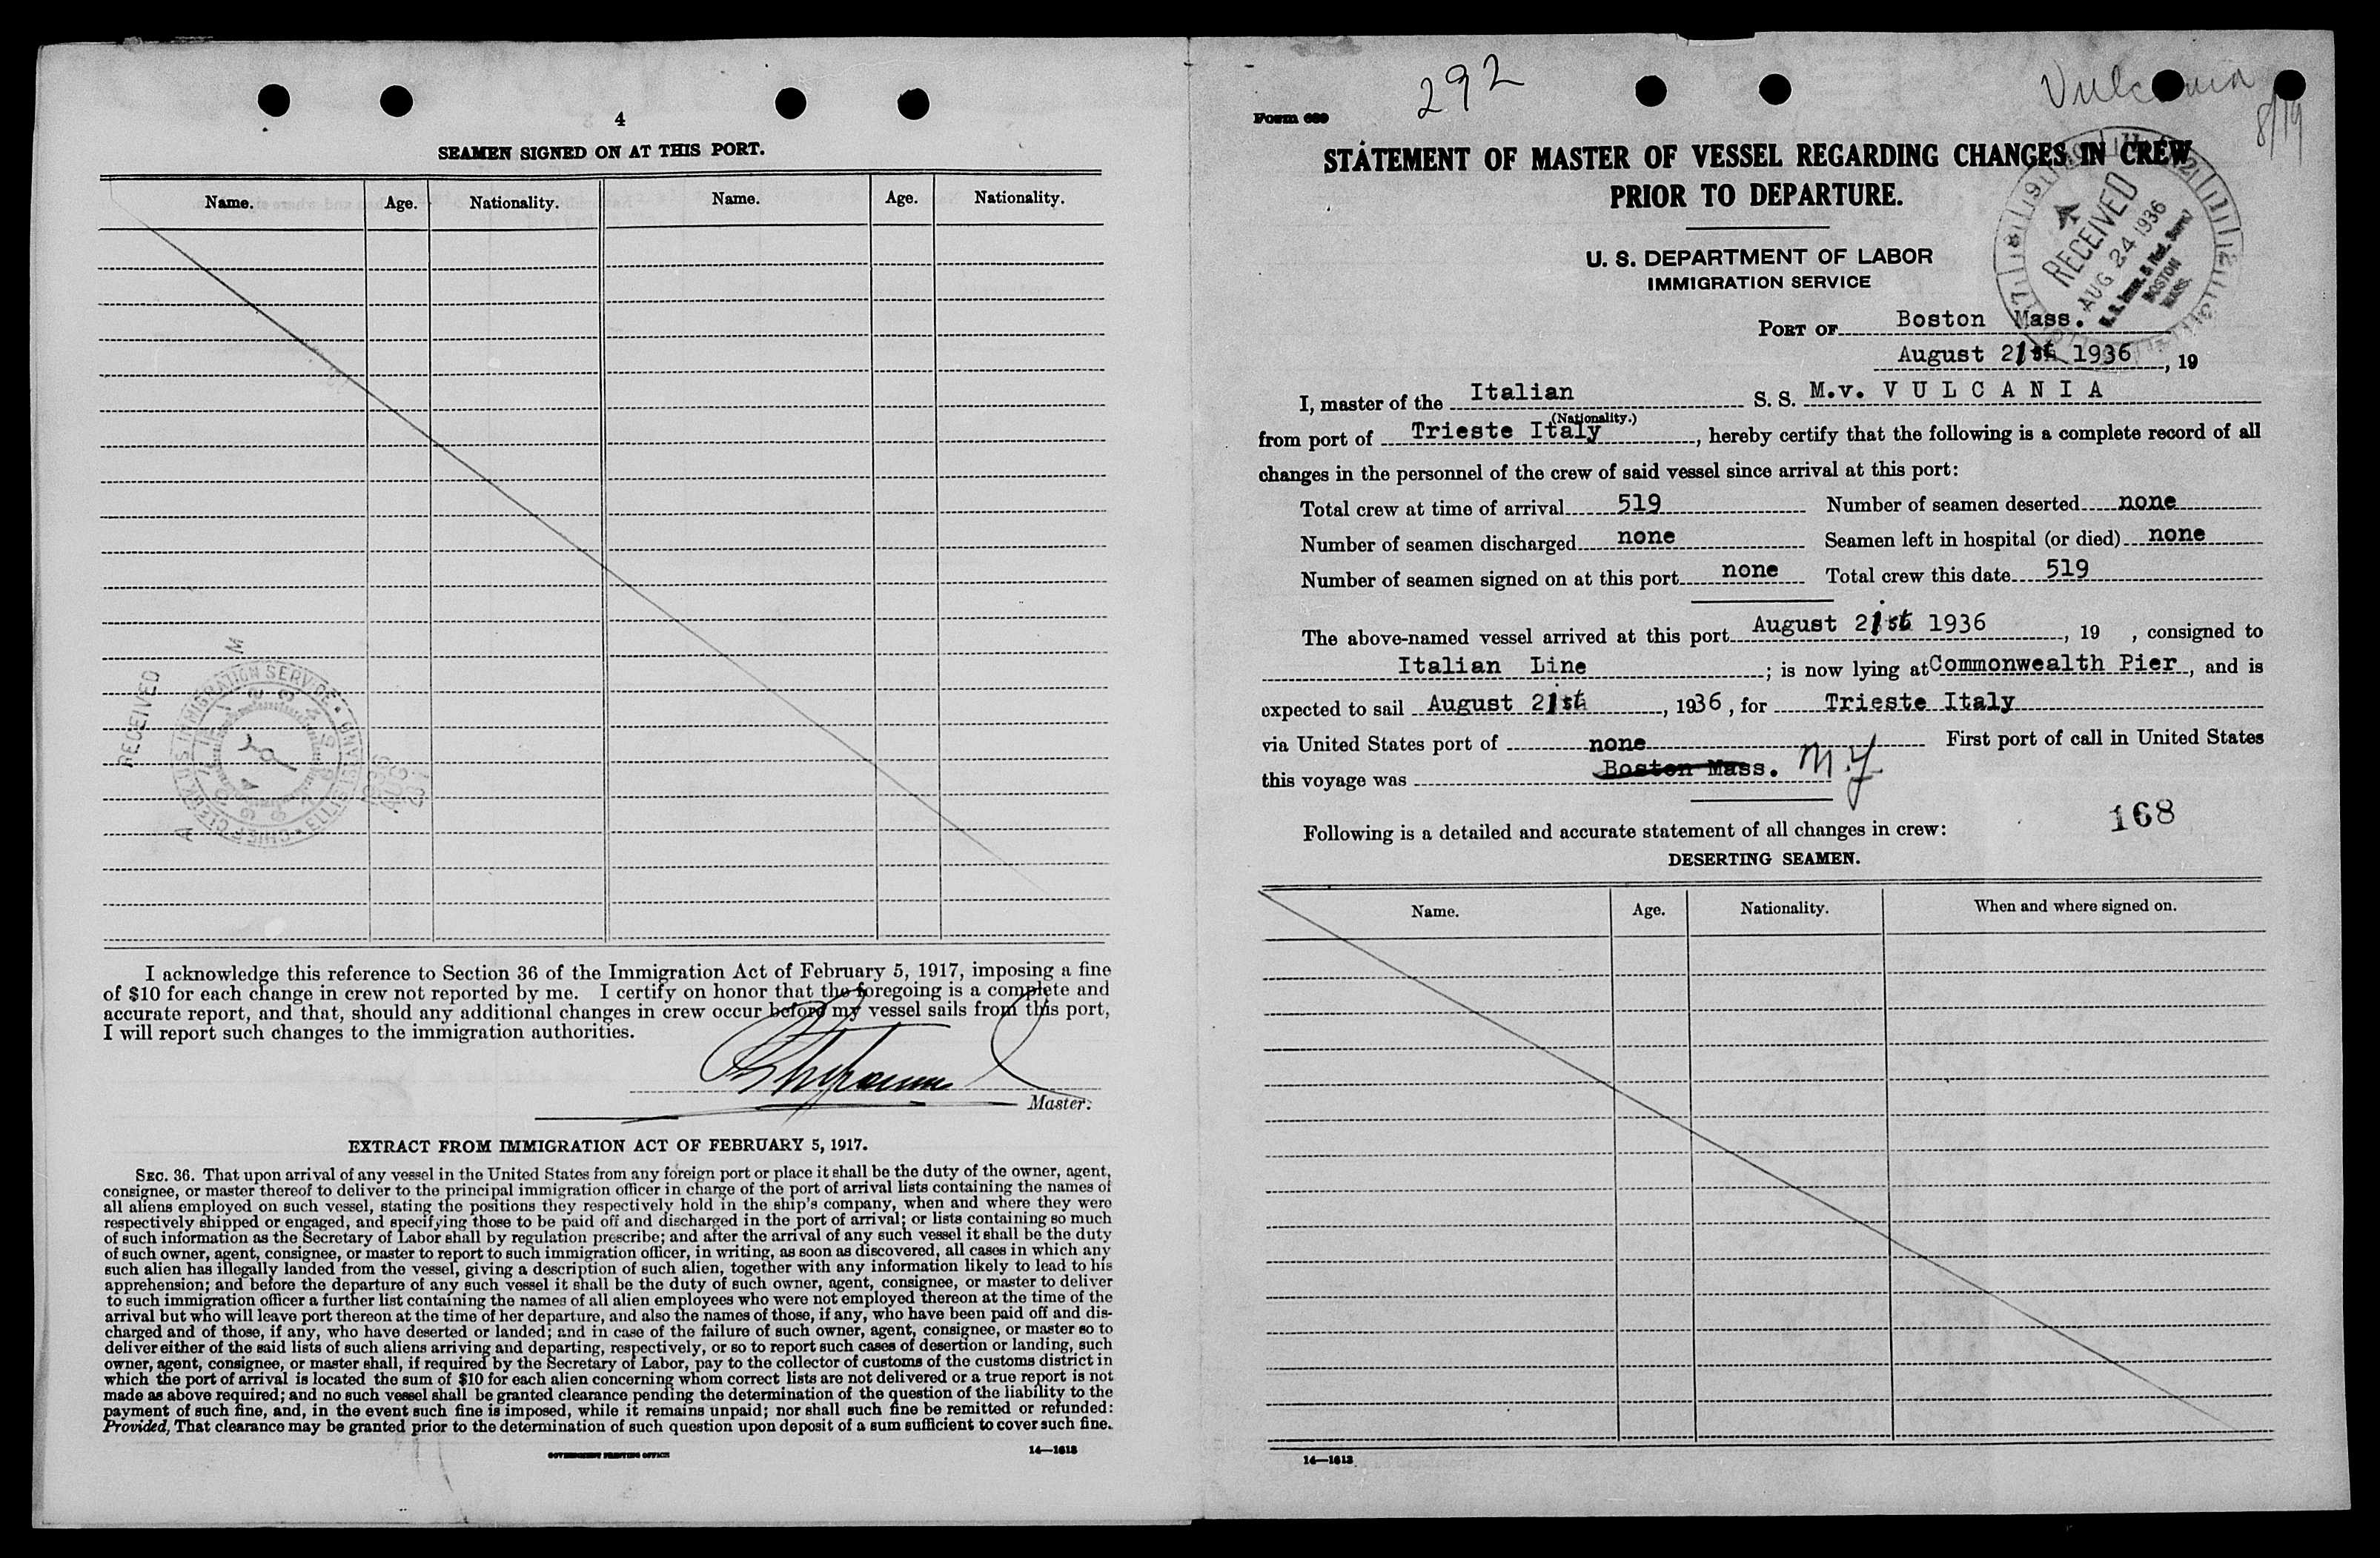 4
SEAMEN SIGNED ON AT THIS PORT.
Name. Age. Nationality. Name. Age. Nationality.
RECEIVED
M
CHIEF CLERK U.S. IMMIGRATION SERVICE • ELLIS ISLAND •
A
I acknowledge this reference to Section 36 of the Immigration Act of February 5, 1917, imposing a fine
of $10 for each change in crew not reported by me. I certify on honor that the foregoing is a complete and
accurate report, and that, should any additional changes in crew occur before my vessel sails from this port,
I will report such changes to the immigration authorities.
Master.
EXTRACT FROM IMMIGRATION ACT OF FEBRUARY 5, 1917.
SEC. 36. That upon arrival of any vessel in the United States from any foreign port or place it shall be the duty of the owner, agent,
consignee, or master thereof to deliver to the principal immigration officer in charge of the port of arrival lists containing the names of
all aliens employed on such vessel, stating the positions they respectively hold in the ship's company, when and where they were
respectively shipped or engaged, and specifying those to be paid off and discharged in the port of arrival; or lists containing so much
of such information as the Secretary of Labor shall by regulation prescribe; and after the arrival of any such vessel it shall be the duty
of such owner, agent, consignee, or master to report to such immigration officer, in writing, as soon as discovered, all cases in which any
such alien has illegally landed from the vessel, giving a description of such alien, together with any information likely to lead to his
apprehension; and before the departure of any such vessel it shall be the duty of such owner, agent, consignee, or master to deliver
to such immigration officer a further list containing the names of all alien employees who were not employed thereon at the time of the
arrival but who will leave port thereon at the time of her departure, and also the names of those, if any, who have been paid off and dis-
charged and of those, if any, who have deserted or landed; and in case of the failure of such owner, agent, consignee, or master so to
deliver either of the said lists of such aliens arriving and departing, respectively, or so to report such cases of desertion or landing, such
owner, agent, consignee, or master shall, if required by the Secretary of Labor, pay to the collector of customs of the customs district in
which the port of arrival is located the sum of $10 for each alien concerning whom correct lists are not delivered or a true report is not
made as above required; and no such vessel shall be granted clearance pending the determination of the question of the liability to the
payment of such fine, and, in the event such fine is imposed, while it remains unpaid; nor shall such fine be remitted or refunded:
Provided, That clearance may be granted prior to the determination of such question upon deposit of a sum sufficient to cover such fine.
GOVERNMENT PRINTING OFFICE 14—1613
292
Vulcania
8/19
Form 689
STATEMENT OF MASTER OF VESSEL REGARDING CHANGES IN CREW
PRIOR TO DEPARTURE.
A
RECEIVED
AUG 24 1936
U. S. Imm. & Nat. Serv.
BOSTON
MASS.
U. S. DEPARTMENT OF LABOR
IMMIGRATION SERVICE
PORT OF Boston Mass.
August 21st 1936, 19
I, master of the Italian S. S. M.v. V U L C A N I A
(Nationality.)
from port of Trieste Italy, hereby certify that the following is a complete record of all
changes in the personnel of the crew of said vessel since arrival at this port:
Total crew at time of arrival 519 Number of seamen deserted none
Number of seamen discharged none Seamen left in hospital (or died) none
Number of seamen signed on at this port none Total crew this date 519
The above-named vessel arrived at this port August 21st 1936, 19 , consigned to
Italian Line; is now lying at Commonwealth Pier, and is
expected to sail August 21st, 1936, for Trieste Italy
via United States port of none First port of call in United States
this voyage was Boston Mass. M.Y.
168
Following is a detailed and accurate statement of all changes in crew:
DESERTING SEAMEN.
Name. Age. Nationality. When and where signed on.
14—1613